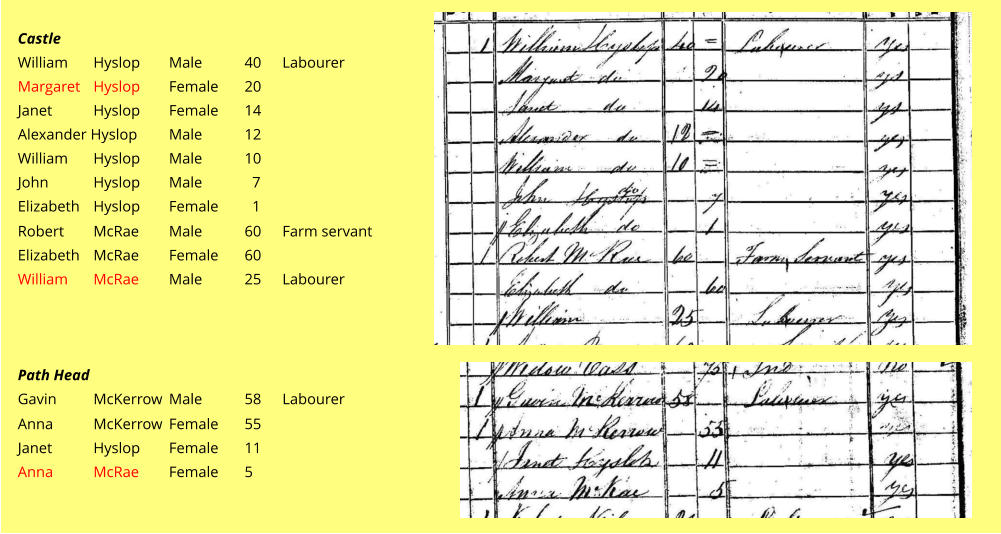 Castle
William Hyslop Male 40 Labourer
Margaret Hyslop Female 20
Janet Hyslop Female 14
Alexander Hyslop Male 12
William Hyslop Male 10
John Hyslop Male 7
Elizabeth Hyslop Female 1
Robert McRae Male 60 Farm servant
Elizabeth McRae Female 60
William McRae Male 25 Labourer
Path Head
Gavin McKerrow Male 58 Labourer
Anna McKerrow Female 55
Janet Hyslop Female 11
Anna McRae Female 5
1 William Hyslop 40 = Labourer yes
Margaret do 20 yes
Janet do 14 yes
Alexander do 12 = yes
William do 10 = yes
John Hyslop do 7 yes
Elizabeth do 1 yes
1 Robert McRae 60 Farm Servant yes
Elizabeth do 60 yes
William 25 Labourer yes
Widow 75 Ind no
1 Gavin McKerrow 58 Labourer yes
1 Anna McKerrow 55
Janet Hyslop 11 yes
Anna McRae 5 yes